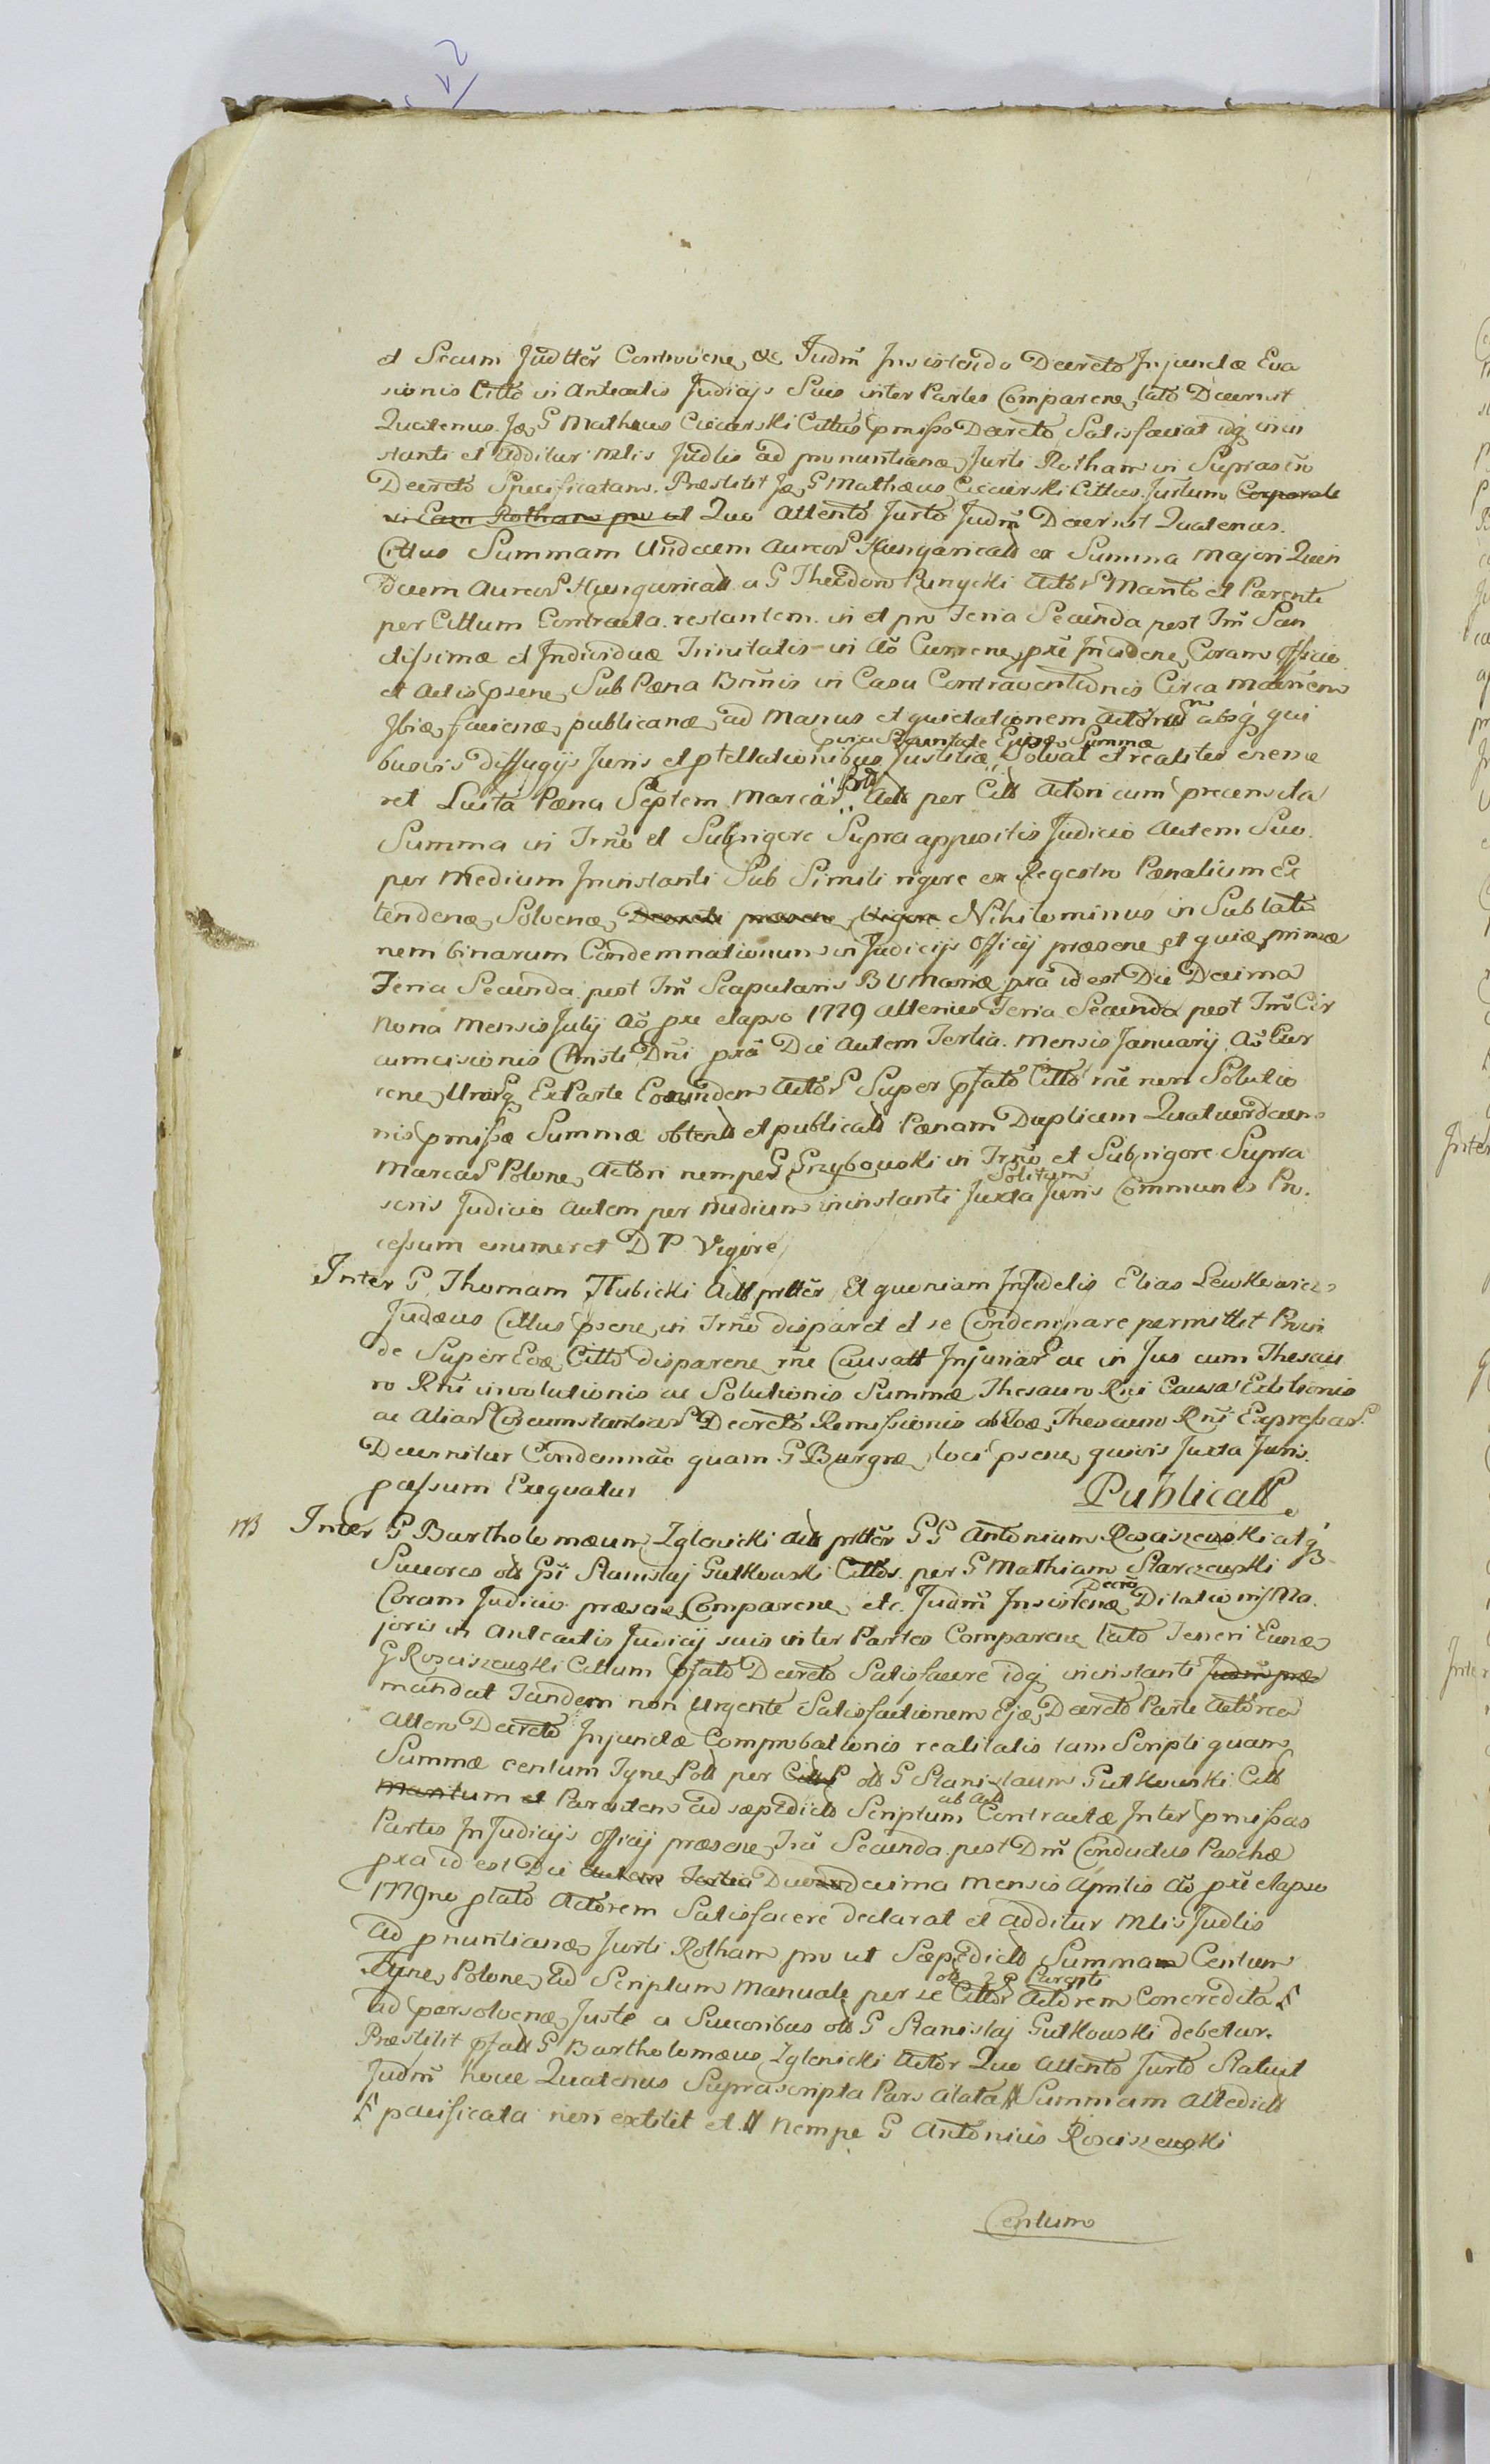 et Secum Judltēr Controvene, &c Judm̄ Insistendo Decreto Injunctæ Eva
sionis Citto in Anteactis Judicÿs Suis inter Partes Comparene, lato Decernit
Quatenus Jdē G Mathæus Ciecierski Cittus pmisso Decreto Satisfaciat idq̃ inin
stanti et Additur Mlis Judlis ad pronuntianæ, Jurti Rotham in Suprascr̄o
Decreto Specificatam. Præstitit Jdē G Mathæus Ciecierski Cittus Jurtum Corporale
in Eam Rotham pro ut Quo Attento Jurto Judm̄ Decernit Quatenus.
Cittus Summam Undecem Aureor Hungaricall ex Summa Majori Quin
decem Aureor Hungaricall a G Theodoro Runycki Actor Marito et Parente
per Cittum Contracta restantem in et pro Feria Secunda post Fm̄ San
ctissimæ et Individuæ Trinitatis in Ao Currene, px̄e Incidene, Coram Officio
et Actis psene, Sub Pæna Bn̄nis in Casu Contraventionis Circa Mat̄riem
Jbidē, faciendæ, publicanæ, ad Manus et quietationem Actoru absq̃ qui
pura Quantitate Ejusdē Summæ
busvis Diffugÿs Juris et ptellationibus Justitiæ, Solvat et realiter enume
ret Luita Pæna Septem Marcar Poll Acto per Citt Actori cum præcensita
Summa in Trno et Subrigore Supra appositis Judicio Autem Suo
per Medium Ininstanti Sub Simili rigore ex Regestro Pænalium Ex
tendenæ, Solvenæ, Decreti præsene, Vigore Nihilominus in Sublatio
nem binarum Condemnationum in Judicÿs Officÿ præsene, et quidē, primæ
Feria Secunda post Fm̄ Scapularis B V Mariæ px̄a id est Die Decima
Nona Mensis Julÿ Ao px̄e elapso 1779 Alterius Feria Secunda post Fm̄ Cir
cumcisionis Christi Dn̄i px̄a Die Autem Tertia Mensis Januarÿ Ao Cur
rene, Utrorq̃, Ex Parte Eorundem Actor Super pfato Citto rn̄e non Solutio
nis pmissæ Summæ obtent et publicall Pænam Duplicem Quatuordecem
Marcar Polone, Actori nempe G Grzybowski in Trno et Subrigore Supra
Solitum
scris Judicio Autem per Medium ininstanti Juxta Juris Communes Pro
cessum enumeret D P Vigore,
Inter G Thomam Hubicki Act prltēr, Et quoniam Infidelis Elias Lewkowicz
Judæus Cittus psene, in Trno disparet et se Condemnare permittet Proin
de Super Eodē, Citto disparene, rn̄e Causall Injuriar ac in Jus cum Thesau
ro Rn̄i involutionis ac Solutionis Summæ Thesauro Rni Causa Extitionis
ac Aliar Circumstantiar Decreto Remissionis ab Eodē, Thesauro Rn̄i Expressar
Decernitur Condemnāo quam G Burgræ, loci psene, quivis Juxta Juris
pcessum Exequatur
Publicall
173 Inter G Bartholomæum Zglenicki Act prltēr GG Antonium Rosciszewski atq̃
Succores olt Gsi Stanislaj Gutkowski Cittos per G Mathiam Starczewski
Coram Judicio præsene, Comparene, etc. Judm̄ Insistenæ, Decrō Dilationis Ma
joris in Anteactis Judicÿ suis inter Partes Comparene, lato Teneri Eundē,
G Rosciszewski Cittum pfato Decreto Satisfacere idq̃ ininstanti Judm̄ præ
mandat Tandem non Urgente Satisfactionem Ejdē, Decreto Parte Actorea
Attento Decreto Injunctæ Comprobationis realitatis tam Scripti quam
Summæ centum Tyne, Poll per Cittor olt G Stanislaum Gutkowski Citt
ab Act
Maritum et Parentem ad sæpedict Scriptum Contractæ Inter pmissas
Partes In Judicÿs Officÿ præsene, Fria Secunda post Dm̄ Conductus Paschæ
px̄a id est Die autem Tertia Duodecima Mensis Aprilis Ao px̄e elapso
1779no pfato Actorem Satisfacere declarat et Additur Mlis Judlis
Ad pnuntianæ, Jurti Rotham pro ut Sæpedict Summam Centum
olt G Parenti
Tyne, Polone, Ad Scriptum Manuale per se Cittor Actorem Concredita
ad persolvenæ, Juste a Succoribus olt G Stanislaj Gutkowski debetur.
Præstitit pfatt G Bartholomæus Zglenicki Actor Quo Attento Jurto Statuit
Judm̄ hocce Quatenus Suprascripta Pars Citata Summam Attedict
pacificata non extitit et Nempe G Antonius Rosciszewski
Centum